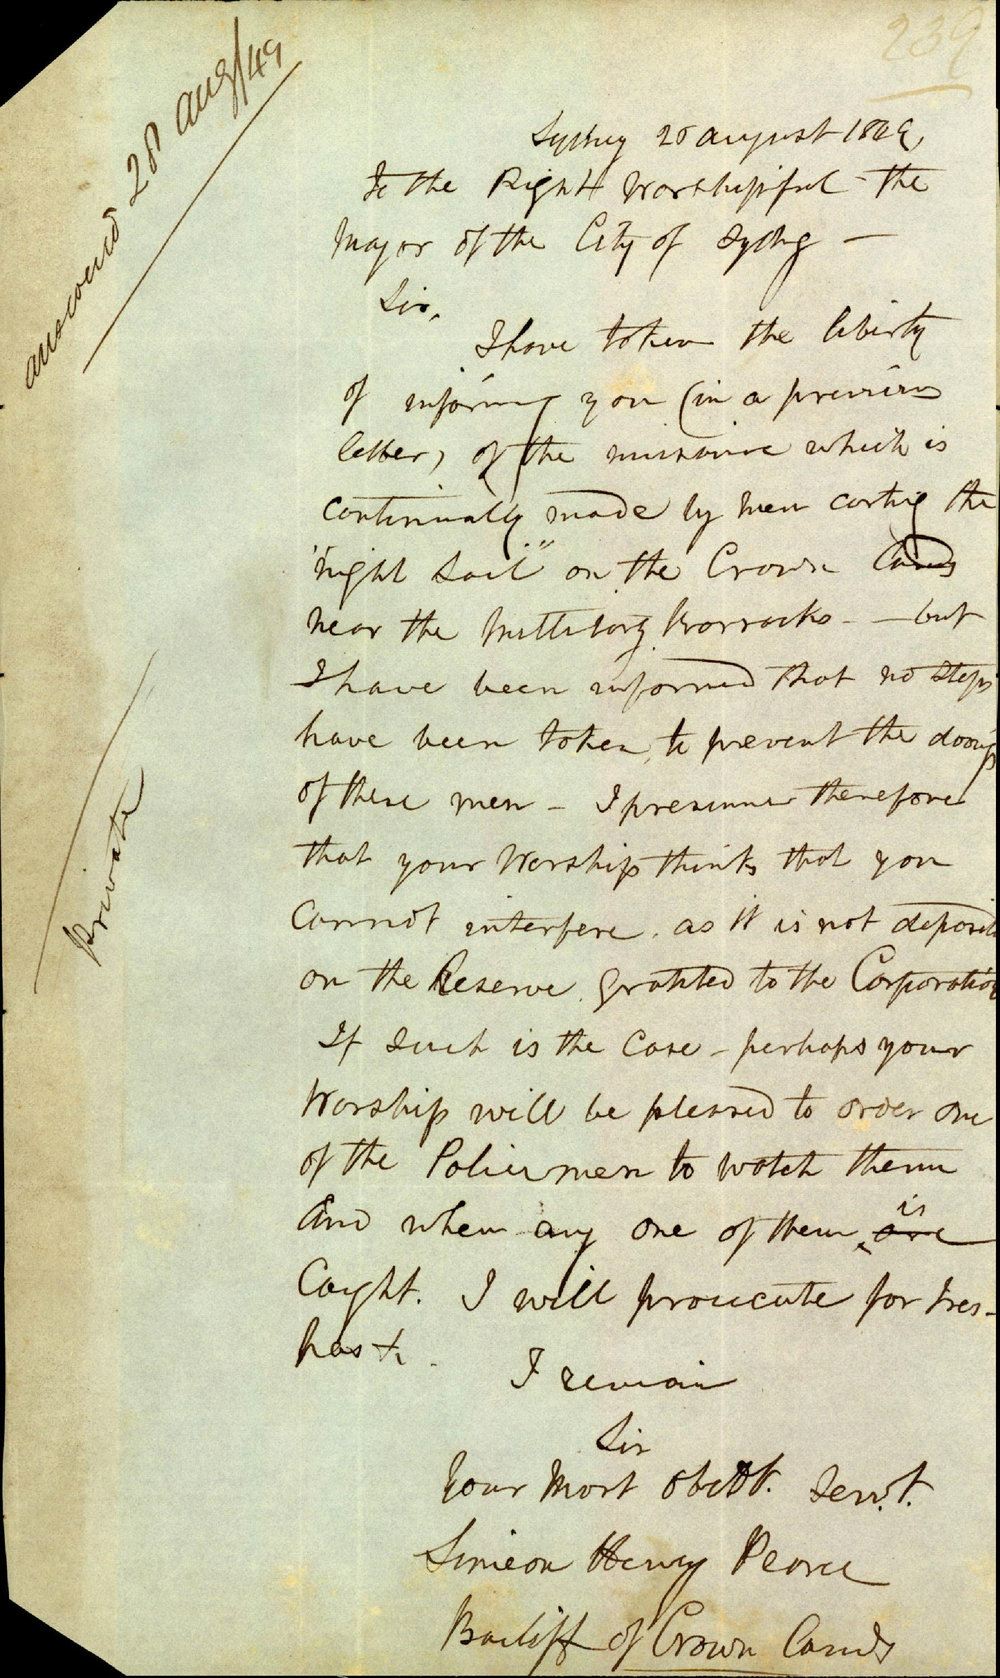 239
answered 28 Aug/49
Private
Sydney 28 August 1849,
To the Right Worshipful the
Mayor of the City of Sydney —
Sir,
I have taken the liberty
of informing you (in a previous
letter) of the nuisance which is
continually made by men carting the
"night soil" on the Crown Lands
near the Millitary Barracks — but
I have been informed that no steps
have been taken, to prevent the doings
of these men — I presume therefore
that your Worship thinks that you
Cannot interfere. as it is not deposited
on the Reserve granted to the Corporation
If such is the Case — perhaps your
Worship will be pleased to order one
of the Policemen to watch them
And when any one of them is are
Caught. I will prosecute for tres-
pass.
I remain
Sir
Your Most Obedt. Servt.
Simeon Henry Pearce
Bailiff of Crown Lands